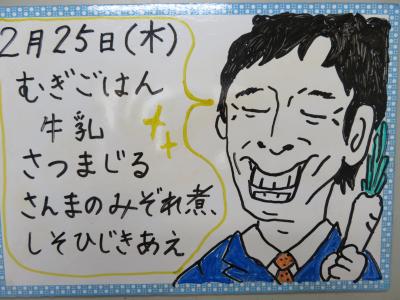 2月25日(木)
むぎごはん
牛乳
さつまじる
さんまのみぞれ煮
しそひじきあえ